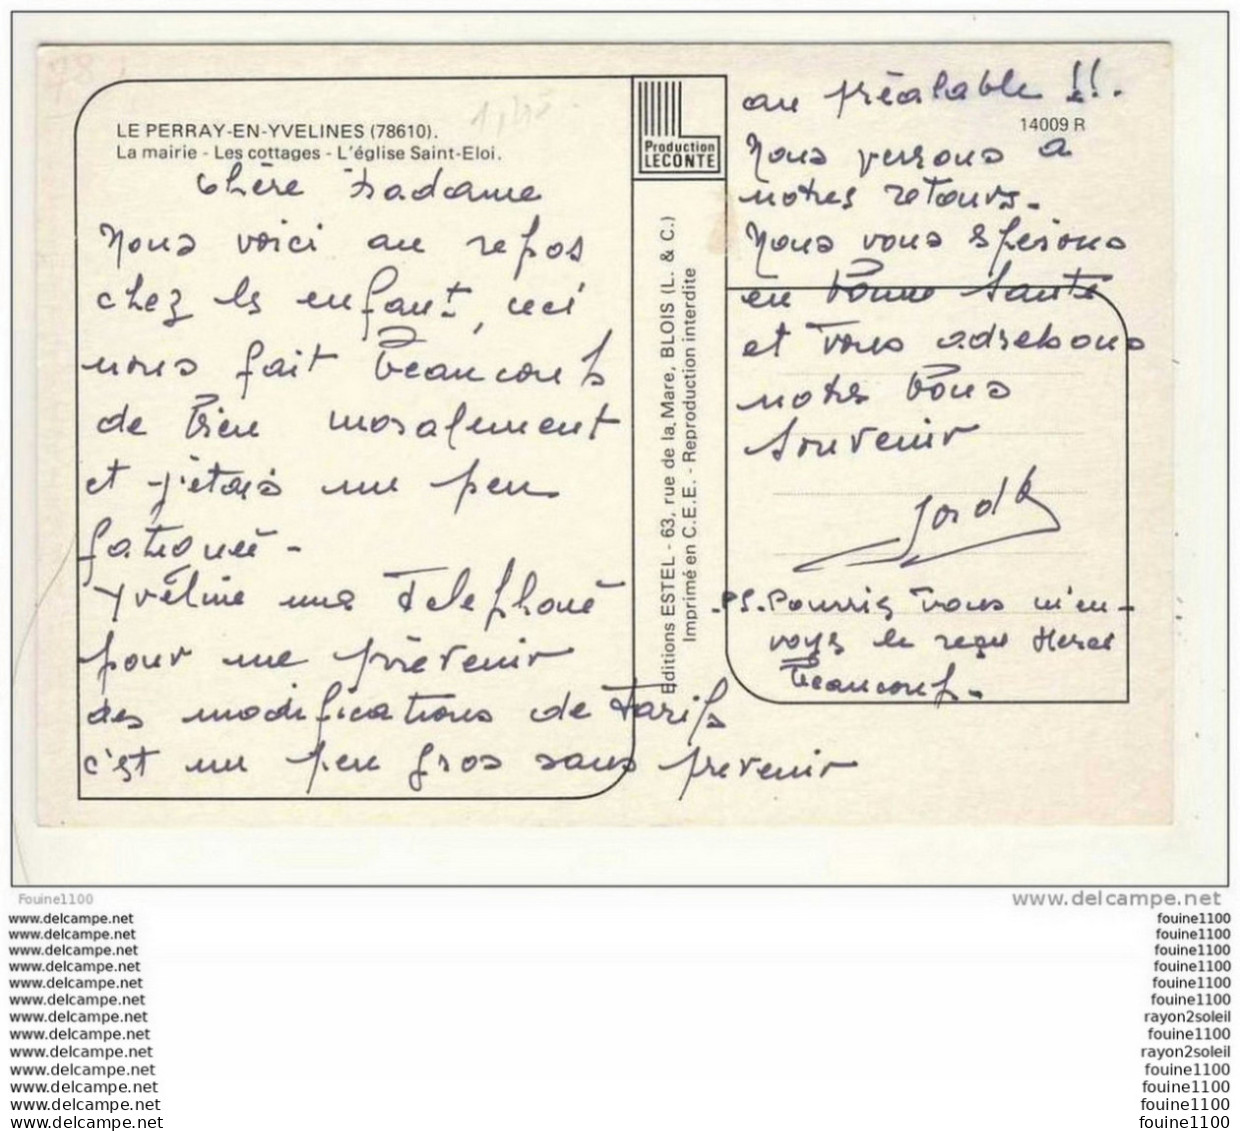 LE PERRAY-EN-YVELINES (78610).
La mairie - Les cottages - L'église Saint-Eloi.
Chère Madame
Nous voici au repos
chez les enfants, ceci
nous fait beaucoup
de bien moralement
et j'étais un peu
fatiguée -
Yvéline ma téléphoné
pour me prévenir
des modifications de tarifs
c'est un peu gros sans prévenir
Production
LECONTE
Editions ESTEL - 63, rue de la Mare, BLOIS (L. & C.)
Imprimé en C.E.E. - Reproduction interdite
au préalable !!.
14009 R
Nous verrons a
notres retours.
Nous vous espérons
en bonne santé
et vous adressons
notres bons
souvenir
PS. Pourriez vous m'en-
voyez le reçu Merci
beaucoup.
Fouine1100
www.delcampe.net
www.delcampe.net fouine1100
www.delcampe.net fouine1100
www.delcampe.net fouine1100
www.delcampe.net fouine1100
www.delcampe.net fouine1100
www.delcampe.net fouine1100
www.delcampe.net rayon2soleil
www.delcampe.net fouine1100
www.delcampe.net rayon2soleil
www.delcampe.net fouine1100
www.delcampe.net fouine1100
www.delcampe.net fouine1100
www.delcampe.net fouine1100